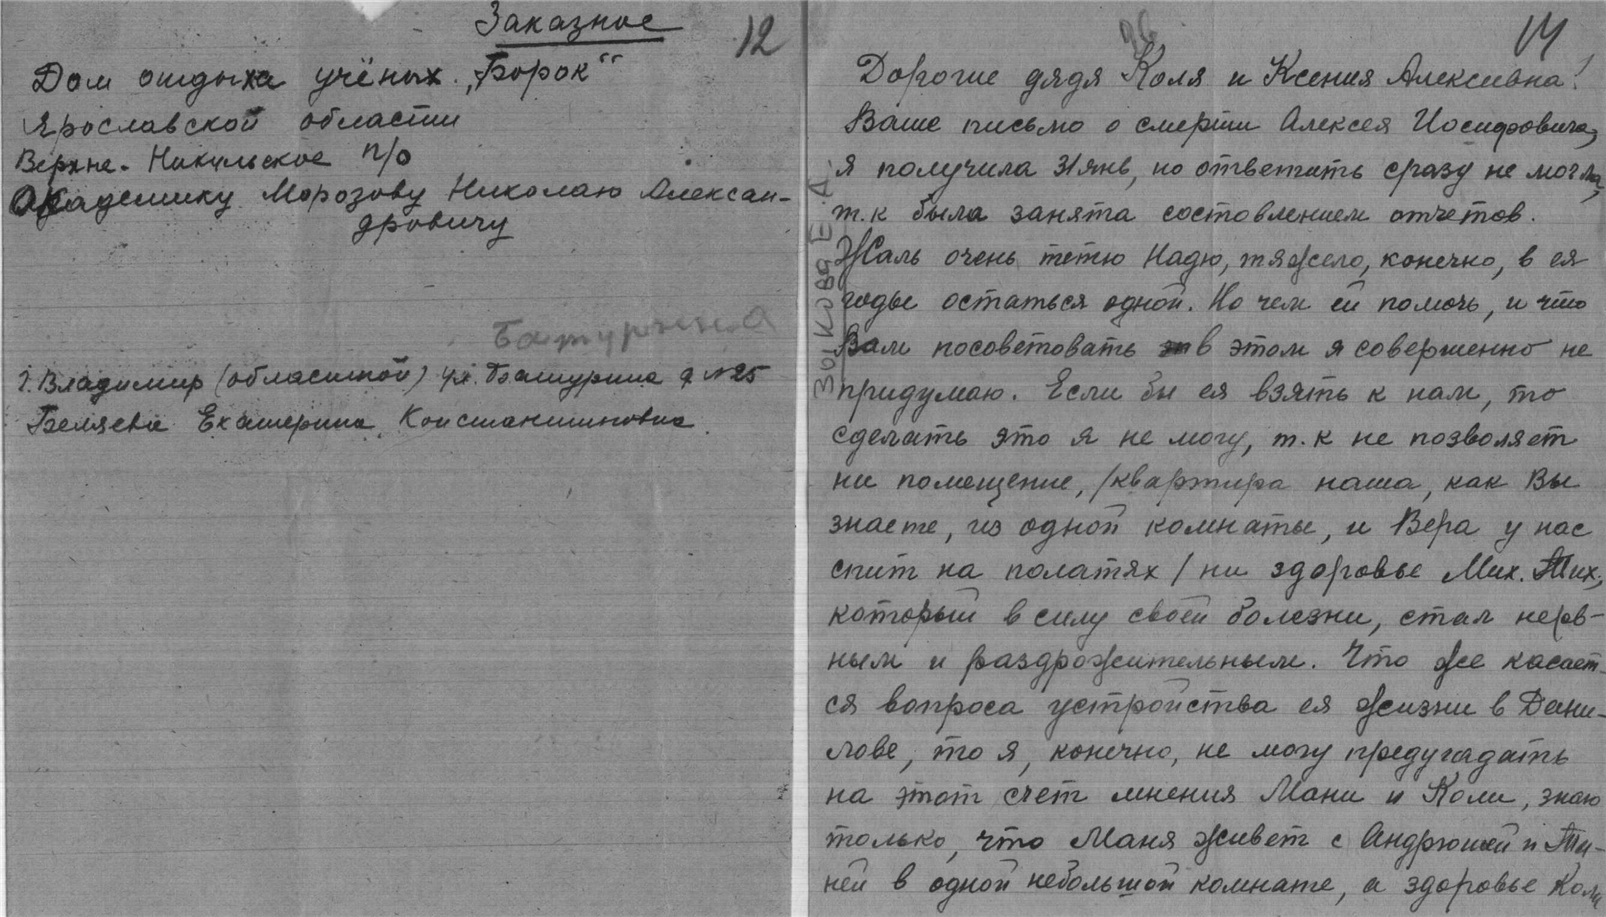 Заказное
12
Дом отдыха учёных „Борок"
Ярославской области
Верхне-Никульское п/о
Академику Морозову Николаю Алексан-
дровичу
Батурина
г. Владимир (областной) ул. Батурина д. №25
Беляева Екатерина Константиновна.
14
Дорогие дядя Коля и Ксения Алексеевна!
Ваше письмо о смерти Алексея Иосифовича,
я получила 31 янв, но ответить сразу не могла,
т.к была занята состовлением отчетов.
Жаль очень тетю Надю, тяжело, конечно, в ея
годы остаться одной. Но чем ей помочь, и что
Вам посоветовать в этом я совершенно не
придумаю. Если бы ея взять к нам, то
сделать это я не могу, т.к не позволяет
ни помещение, /квартира наша, как Вы
знаете, из одной комнаты, и Вера у нас
спит на полатях/ ни здоровье Мих. Тих.,
который в силу своей болезни, стал нерв-
ным и раздрожительным. Что же касает-
ся вопроса устройства ея жизни в Дани-
лове, то я, конечно, не могу предугадать
на этот счет мнения Мани и Коли, знаю
только, что Маня живет с Андрюшей и Та-
ней в одной небольшой комнате, а здоровье Коли
ЗЫКОВА Е. А.